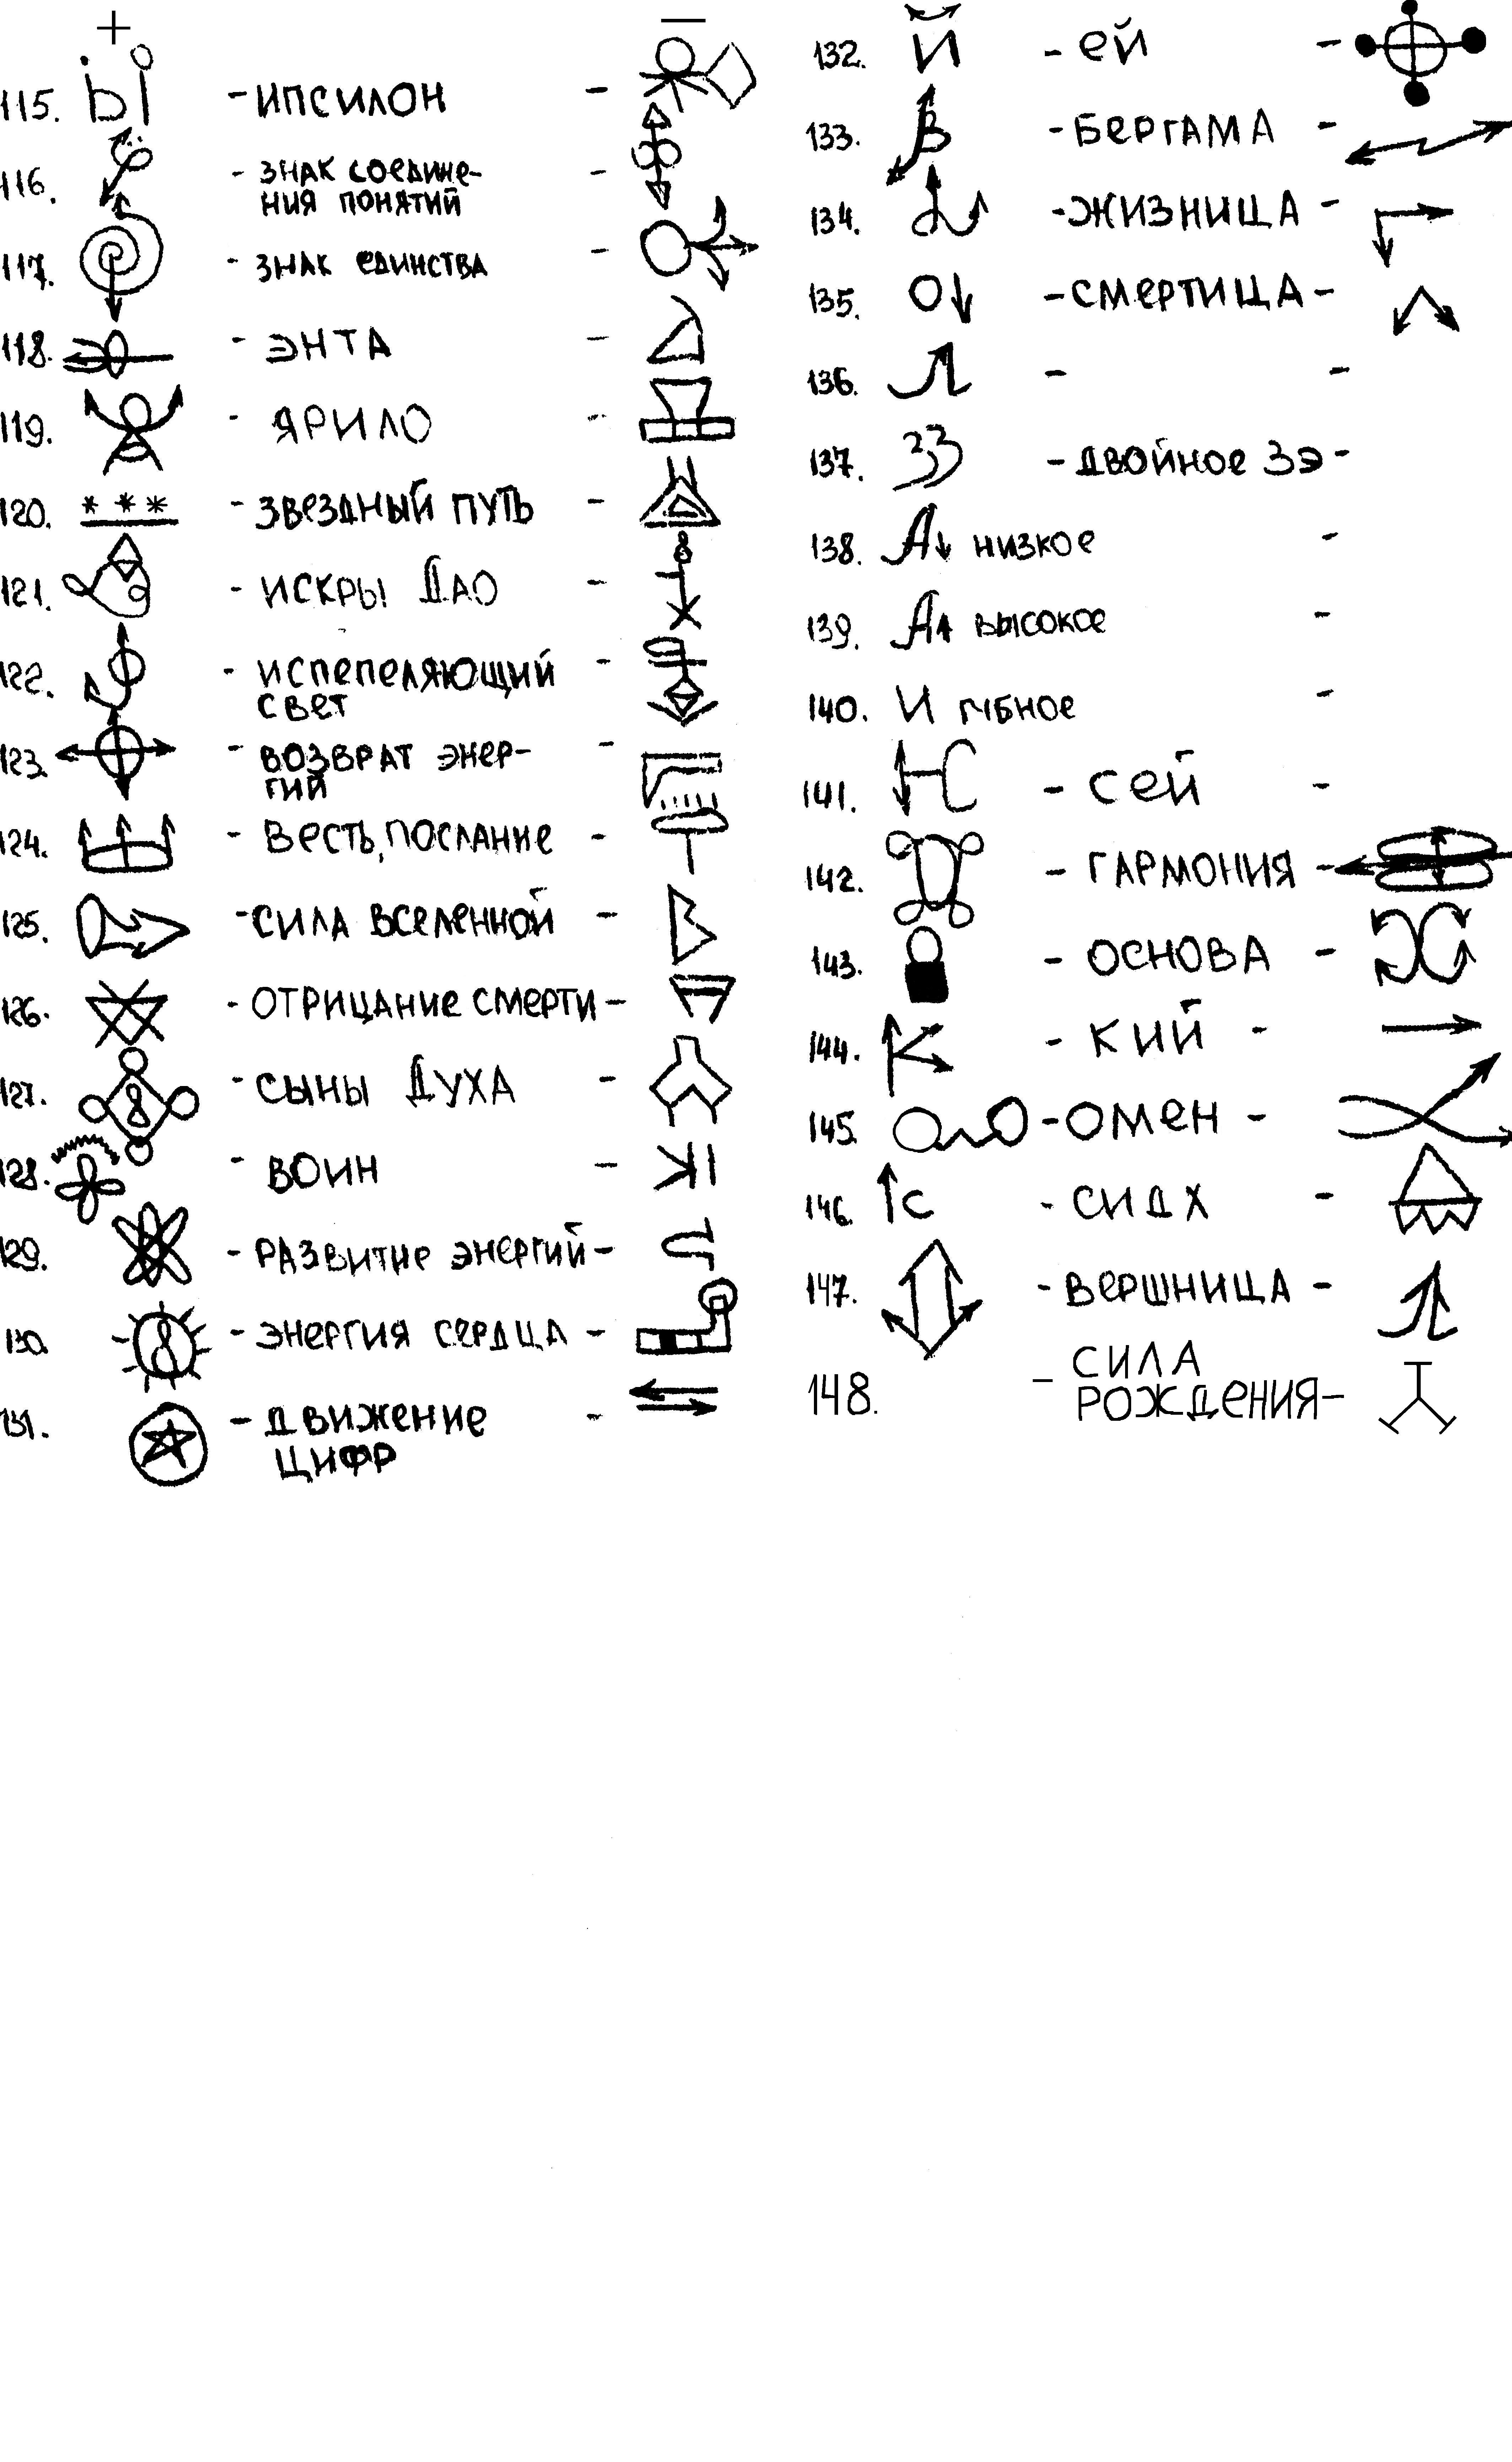 + —
115. - ИПСИЛОН -
116. - ЗНАК СОЕДИНЕ- -
НИЯ ПОНЯТИЙ
117. - ЗНАК ЕДИНСТВА -
118. - ЭНТА -
119. - ЯРИЛО -
120. *** - ЗВЕЗДНЫЙ ПУТЬ -
121. - ИСКРЫ ДАО -
122. - ИСПЕПЕЛЯЮЩИЙ -
СВЕТ
123. - ВОЗВРАТ ЭНЕР- -
ГИЙ
124. - ВЕСТЬ, ПОСЛАНИЕ -
125. - СИЛА ВСЕЛЕННОЙ -
126. - ОТРИЦАНИЕ СМЕРТИ -
127. - СЫНЫ ДУХА -
128. - ВОИН -
129. - РАЗВИТИЕ ЭНЕРГИЙ -
130. - ЭНЕРГИЯ СЕРДЦА -
131. - ДВИЖЕНИЕ -
ЦИФР
132. Й - ЕЙ -
133. - БЕРГАМА -
134. - ЖИЗНИЦА -
135. О↓ - СМЕРТИЦА -
136. - -
137. ЗЗ - ДВОЙНОЕ ЗЭ -
138. А↓ НИЗКОЕ -
139. А↑ ВЫСОКОЕ -
140. И ГУБНОЕ -
141. - СЕЙ -
142. - ГАРМОНИЯ -
143. - ОСНОВА -
144. - КИЙ -
145. - ОМЕН -
146. ↑С - СИДХ -
147. - ВЕРШНИЦА -
148. - СИЛА
РОЖДЕНИЯ -